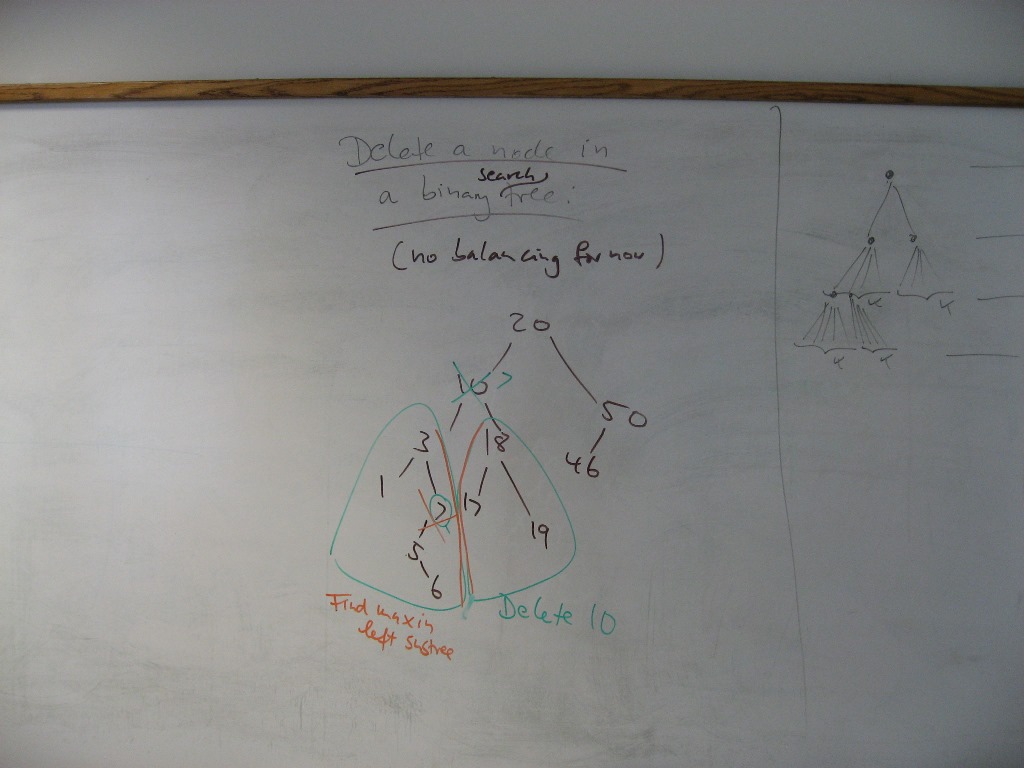 Delete a node in
search
a binary tree:
(no balancing for now)
20
10 7
50
3 18
46
1 7 17
19
5
6
Find max in
left subtree
Delete 10
4 4
4 4